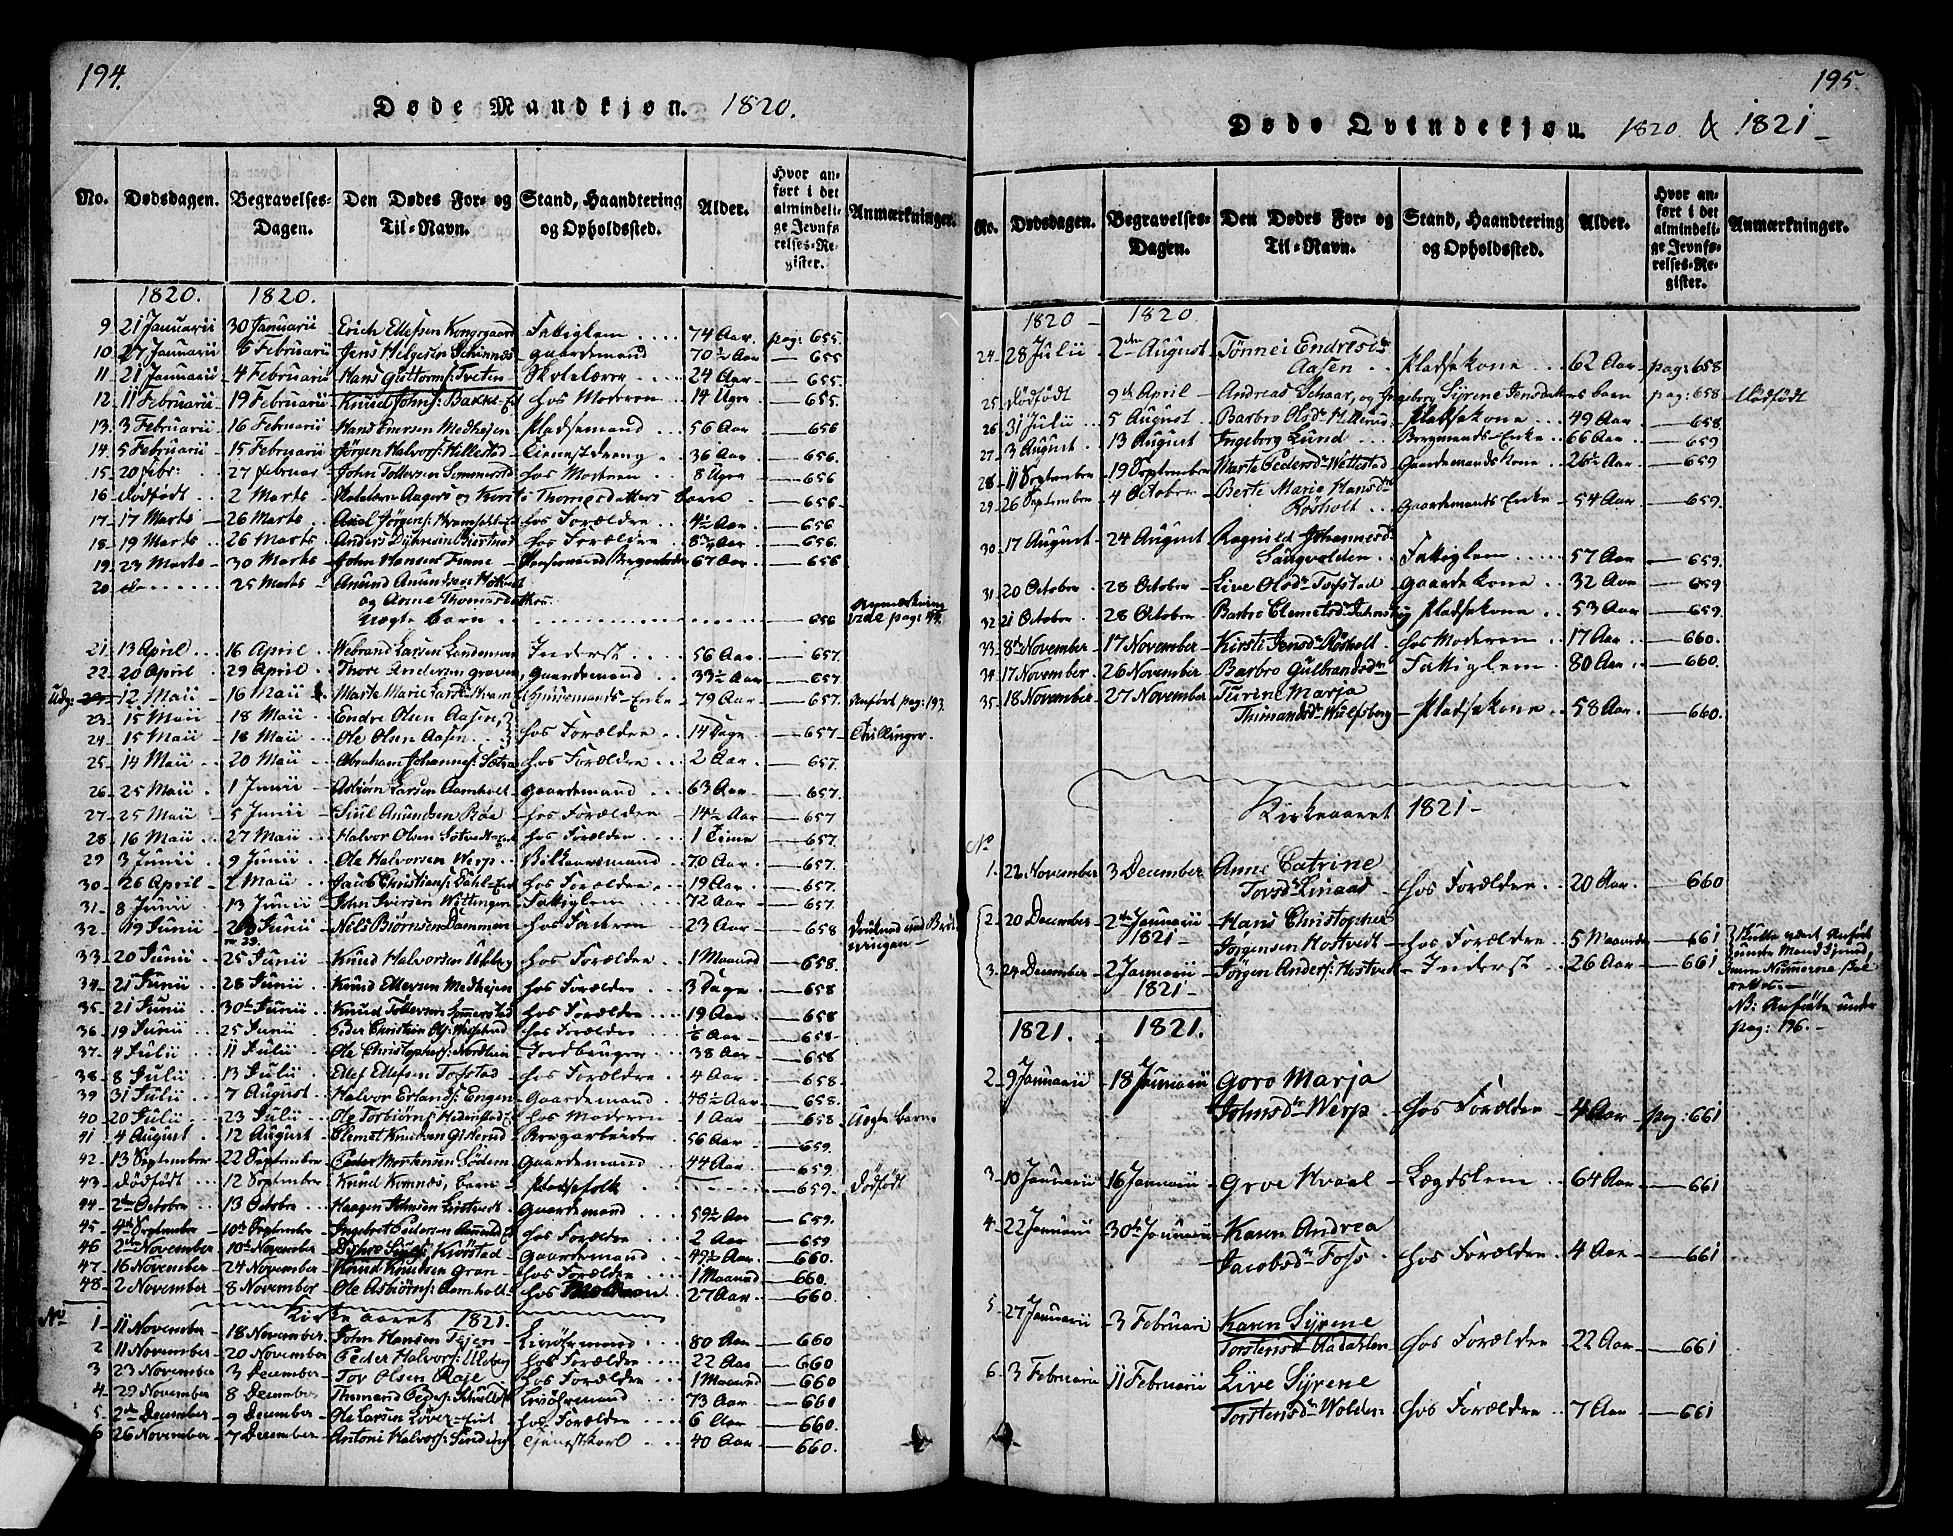 194.
Døde Mandkjøn. 1820.
No. Dødsdagen. Begravelses-Dagen. Den Dødes For- og Til-Navn. Stand, Haandtering og Opholdssted. Alder. Hvor anført i det almindelige Jevnførelses-Register. Anmærkninger.
1820. 1820.
9 21 Januarii 30 Januarii Erich Ellefsen Kongsgaard Fattiglem 74 Aar pag: 655.
10 27 Januarii 6 Februarii Jens Helgesen Gaardemand 70½ Aar 655
11 21 Januarii 4 Februarii Hans Guttorms: Tveten Skolelærer 24 Aar 655.
12 11 Februarii 19 Februarii Knud Johns: Bakke-Eie hos Moderen 14 Uger 655.
13 3 Februarii 16 Februarii Hans Medhejen Pladsemand 56 Aar 656
14 5 Februarii 15 Februarii Jørgen Halvors: Hillestad Tienestdreng 36 Aar 656.
15 20 Febr: 27 Februar John Tollevsen Sommerstad hos Moderen 8 Uger 656
16 Dødfødt 2 Marts og Kirsti Thomasdatters Barn 656
17 17 Marts 26 Marts Axel Jørgens: hos Forældre 4½ Aar 656
18 19 Marts 26 Marts Anders hos Forældre Aar 656.
19 23 Marts 30 Marts John Hansen 67 Aar 656
20 25 Marts Anund Anundsen
og Anne Thomasdatters
uægte Barn 656 Anmerkning vide pag: 49.
21 13 April 16 April Webrand Larsen Inderst 56 Aar 657.
22 20 April 29 April Thore Andersen Gaardemand 33½ Aar 657
Udg: 12 Maii 16 Maii Marte Marie Huusemands-Enke 79 Aar 657. Anført pag: 193
23 15 Maii 18 Maii Endre Olsen Aasen,
24 15 Maii 18 Maii Ole Olsen Aasen hos Forældre 14 Dage 657 Tvillinger.
25 14 Maii 20 Maii Abraham Johannes: hos Forældre 2 Aar 657.
26 25 Maii 1 Junii Asbiørn Larsen Aamholt Gaardemand 63 Aar 657.
27 25 Maii 5 Junii Anundsen Røe hos Forældre 14½ Aar 657
28 16 Maii 27 Maii Halvor Olsen hos Forældre 1 Time 657.
29 3 Junii 9 Junii Ole Halvorsen Werp Vilkaarsmand 70 Aar 657.
30 26 April 2 Maii Jacob Christians: Dahl-Eie hos Forældre 19 Aar 657.
31 8 Junii 13 Junii John Iversen Wittingen Fattiglem 72 Aar 657.
32 19 Junii Junii Niels Biørnsen Dammen hos Faderen 23 Aar 658
33 20 Junii 25 Junii Knud Halvorsen Ulsberg hos Forældre 1 Maaned 658.
34 21 Junii 28 Junii Knud Ellevsen Medhejen hos Forældre 3 Dage 658
35 21 Junii 30te Junii Knud Tollevsen Sommerstad hos Forældre 19 Aar 658
36 19 Junii 25 Junii Peder Christian hos Forældre Aar 658
37 4 Julii 11 Julii Ole Christophers: Jordbruger 38 Aar 658
38 8 Julii 13 Julii Ellef Ellefsen Tofstad hos Forældre 4 Aar 658.
39 31 Julii 7 August Halvor Erlands: Engen Gaardemand 48½ Aar 658.
40 20 Julii 23 Julii Ole Torbiørns: Hedenstad-Eie hos Moderen 1 Aar 658 Uægte Barn
41 4 August 12 August Clemet Knudsen Gislerud Bergarbeider 56 Aar 659.
42 13 September 22 September Peder Mortensen Gaardemand 44 Aar 659
43 Dødfødt 12 September Knud Komnæs, Barn Pladsefolk 659. Dødfødt
44 2den October 13 October Haagen Gaardemand 59½ Aar 659.
45 4de September 10de September Ingebret Pedersen hos Forældre 2 Aar 659
46 2den November 10de November Kiørstad Gaardemand 49½ Aar 660.
47 16 November 24 November Knud Knudsen Gran hos Forældre 1 Maaned 660.
48 2 November 8 November Ole Asbiørns: Aamholt hos Moderen 27 Aar 660.
No. Kirkeaaret 1821.
1 11 November 18 November John Hansen Livøhrmand 80 Aar 660
2 11 November 20 November Peder Halvors: Ulsberg hos Forældre 22 Aar 660
3 23 November 3 December Tov Olsen Raje hos Forældre 1 Maaned 660
4 29 November 8 December Thomand Peders: Livøhrmand 73 Aar 660
5 2den December 9 December Ole Larsen hos Forældre 6 Aar 660.
6 26 November 7 December Antoni Halvors: Tienestkarl 40 Aar 660.
195.
Døde Qvindekjøn. 1820 & 1821
No. Dødsdagen. Begravelses-Dagen. Den Dødes For- og Til-Navn. Stand, Haandtering og Opholdssted. Alder. Hvor anført i det almindelige Jevnførelses-Register. Anmærkninger.
1820 1820
24 28 Julii 2den August Tønnei Endresdr
Aasen Pladsekone 62 Aar pag: 658
25 Dødfødt 9de April Andreas Schaar, og Ingeborg Syrene Jensdatters Barn pag: 658 Dødfødt
26 31 Julii 5 August Barbro Olsdr Pladsekone 49 Aar 658.
27 3 August 13 August Ingeborg Lund Bergmands-Enke 66 Aar 659
28 11 September 19 September Marte Pedersdr Wettestad Gaardemands Kone 26½ Aar 659
29 26 September 4 October Berte Marie Hansdr
Røsholt Gaardemands Enke 54 Aar 659.
30 17 August 24 August Ragnild Johannesdr
Langvolden Fattiglem 57 Aar 659.
31 20 October 28 October Live Olsdr Tofstad Gaardekone 32 Aar 659
32 21 October 28 October Barbro Clemetsdr Pladsekone 53 Aar 659.
33 8de November 17 November Kirsti Jensdr Røsholt hos Moderen 17 Aar 660.
34 17 November 26 November Barbro Gulbrandsdr Fattiglem 80 Aar 660.
35 18 November 27 November Turine Marja
Thimandsdr Wulfsberg Pladsekone 58 Aar 660.
Kirkeaaret 1821
No
1. 22 November 3 December Anne Catrine
Tovsdr Linaas hos Forældre 20 Aar 660
2. 20 December 2den Januarii Hans Christopher
1821 Jørgensen Hostvedt hos Forældre 5 Maaneder 661
3. 24 December 2 Januarii Jørgen Anders: Hostvedt Inderst 26 Aar 661
1821
Skulle været Anført under Mandkjønnet Numerne rettes.
NB: Anførte under pag: 196.
1821. 1821.
2 9 Januarii 18 Januarii Goro Marja
Johnsdr Werp hos Forældre 4 Aar pag: 661
3 10 Januarii 16 Januarii Groe Kvaal Lægdslem 64 Aar 661
4 22 Januarii 30te Januarii Karen Andrea
Jacobsdr Foss hos Forældre 4 Aar 661
5 27 Januarii 3 Februari Karen Syrene
Torstensdr Aasdahlen hos Forældre 22 Aar 661
6 3 Februari 11 Februarii Live Syrene
Torstensdr Wolden hos Forældre 7 Aar 661